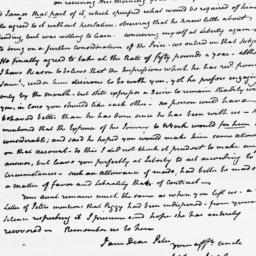 on receiving this Morning your
to Sam. that part of it, which proposed what would be required of him
he agreed to without hesitation, observing that he knew little about
reading, but was willing to learn. conceiving myself at liberty again
to bring on a further consideration of the Price. we entered on that subject
He finally agreed to take at the Rate of fifty pounds a year. although
I have Reason to believe that the Impressions which he has recd from
Sam., lead him desirous to be with you, yet he prefers engaging
only by the month. but still expresses a Desire to remain steadily with
you, in case you should like each other. no person could have
behaved better than he has done since he has been with us.
mentioned that the expence of his Journey to York would be
considerable; and said he hoped you would make him some allowance
on that account. To this I did not think it prudent to make any
answer, but leave you perfectly at liberty to act according to
circumstances. such an allowance if made, had better be made as
a matter of favor and liberality than of Contract.
Your aunt remains much the same as when you left us. a
letter of Peter mentions that Peggy had been indisposed. from your
silence respecting it I presume and hope she has entirely
recovered. Remember us to her
I am Dear Peter
your affte. uncle